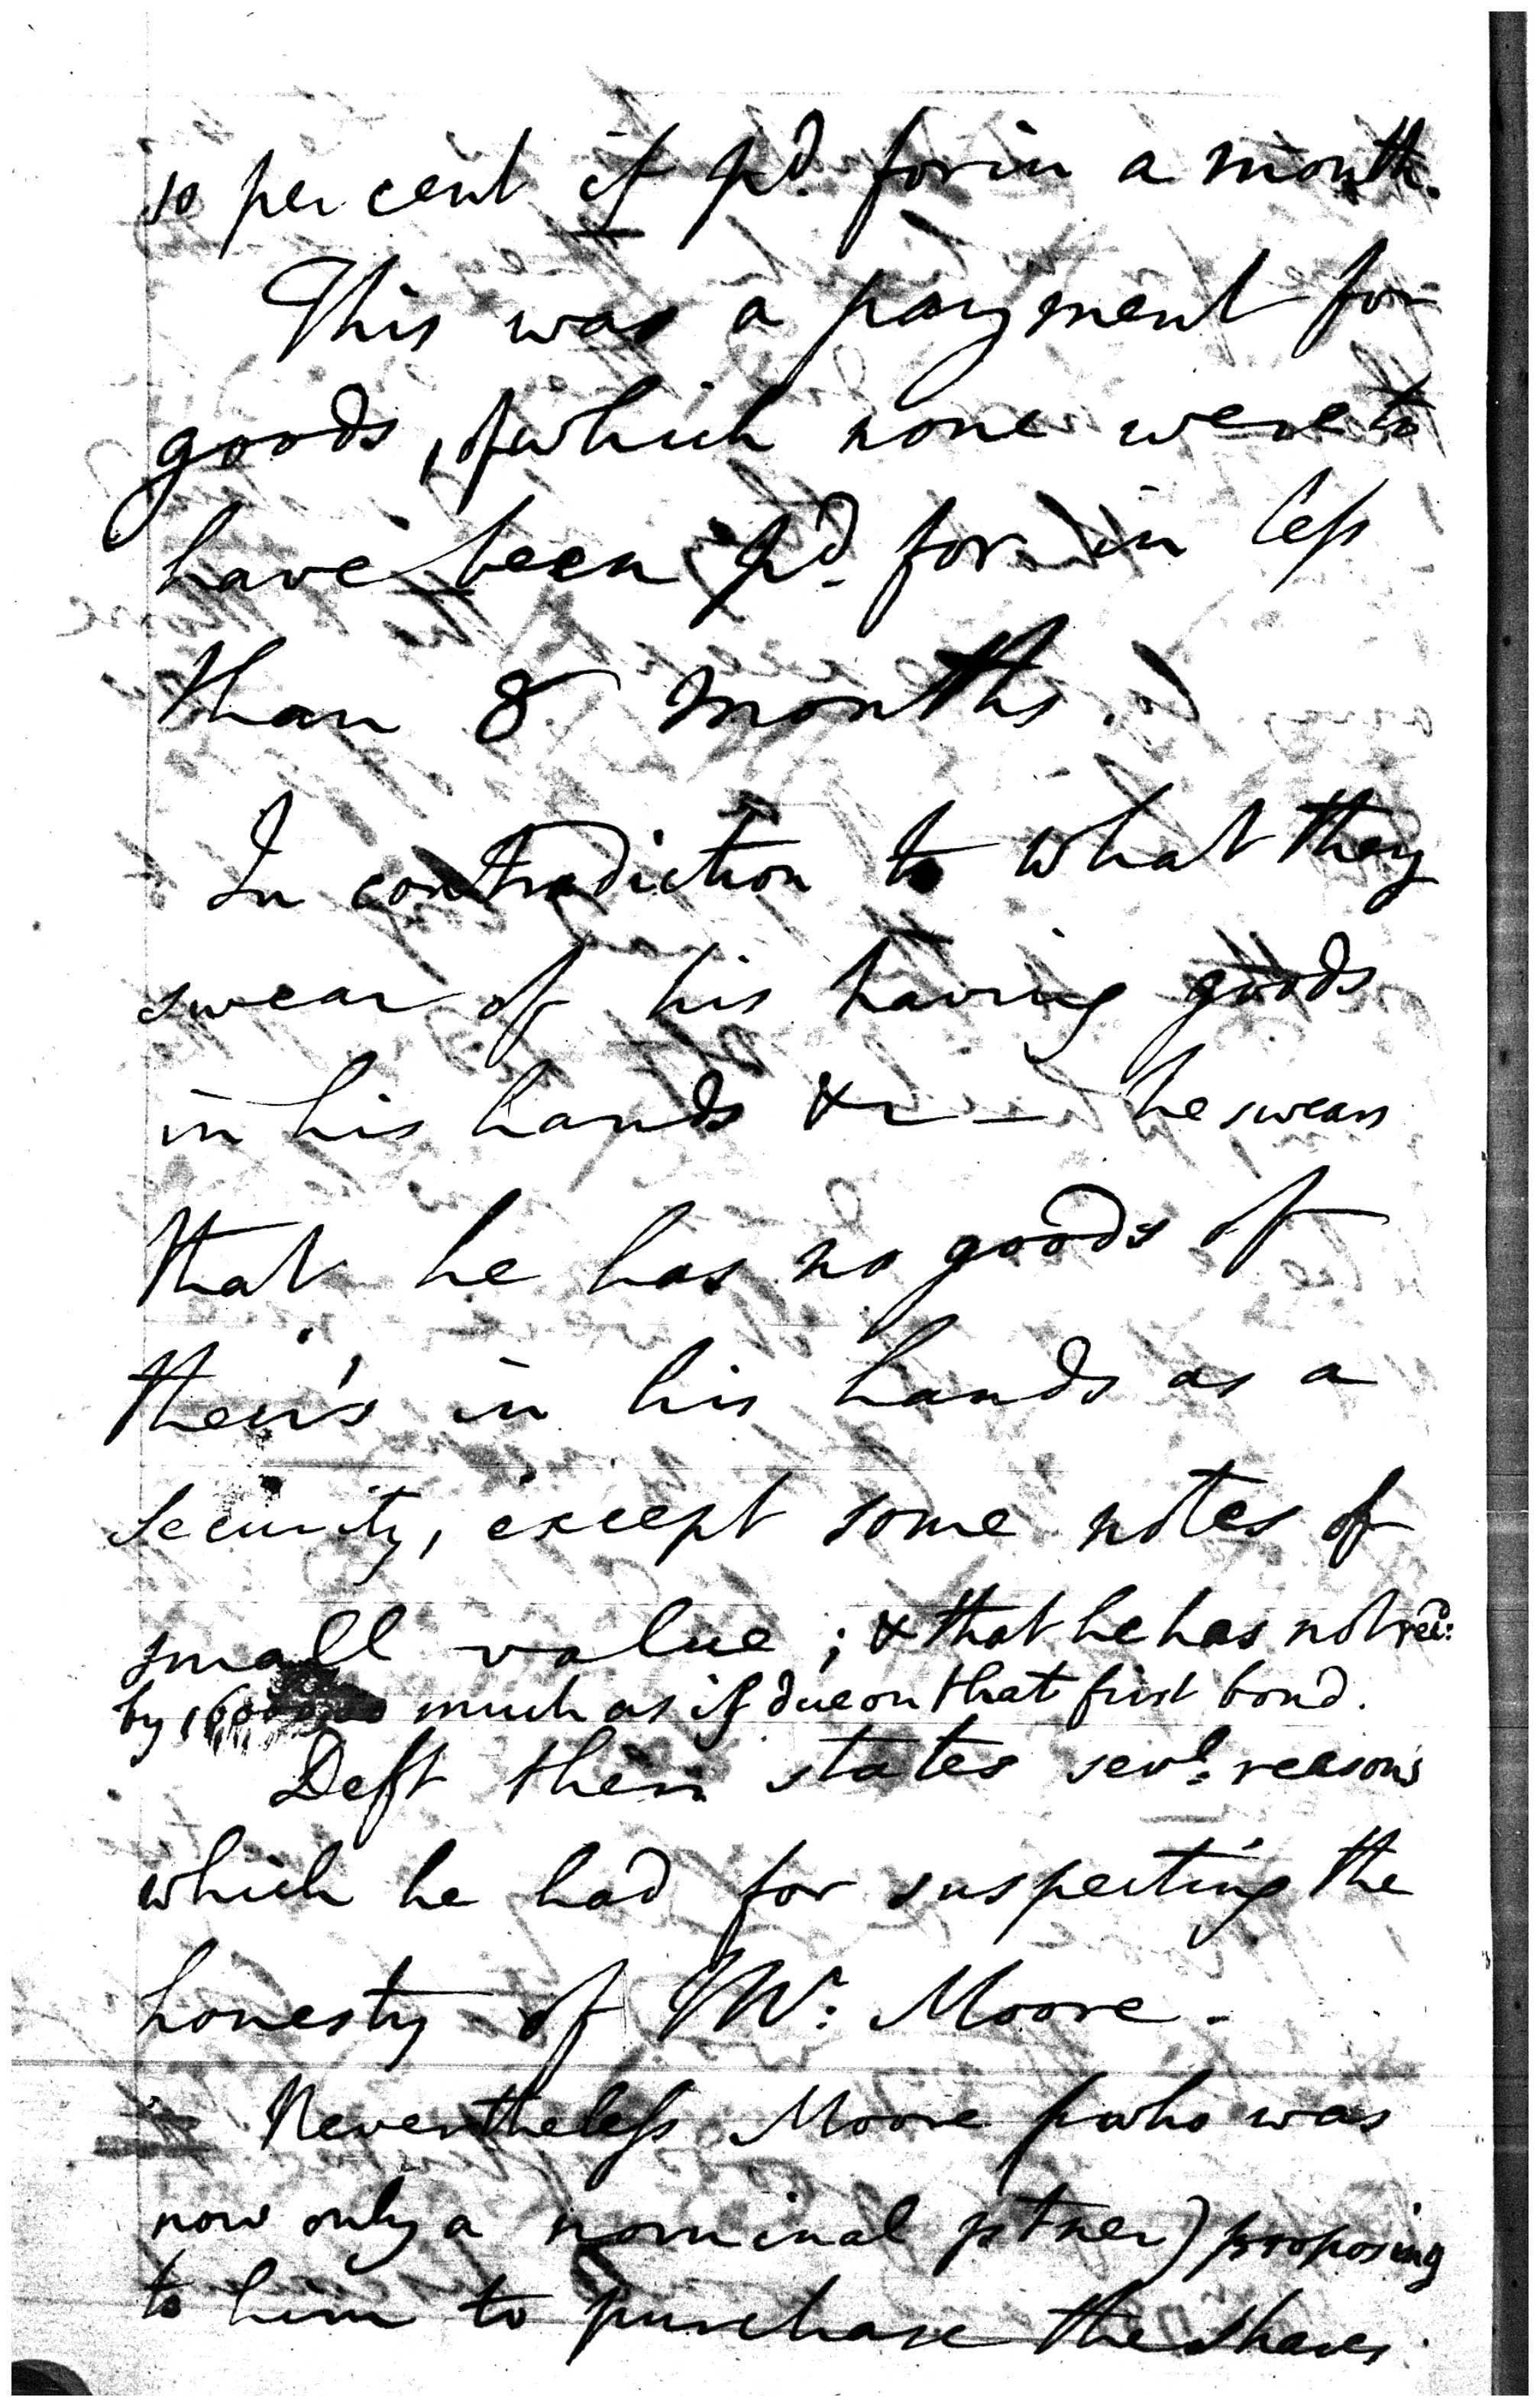 10 per cent if pd. for in a month.
This was a payment for
goods, of which none were to
have been pd. for in less
than 8 months.
In contradiction to what they
swear of his having goods
in his hands &c — he swears
that he has no goods of
their's in his hands as a
security, except some notes of
small value; & that he has not recd:
by much as is due on that first bond.
Deft then states sevl: reasons
which he had for suspecting the
honesty of Mr: Moore.
Nevertheless Moore (who was
now only a nominal ptner) proposing
to him to purchase the shares